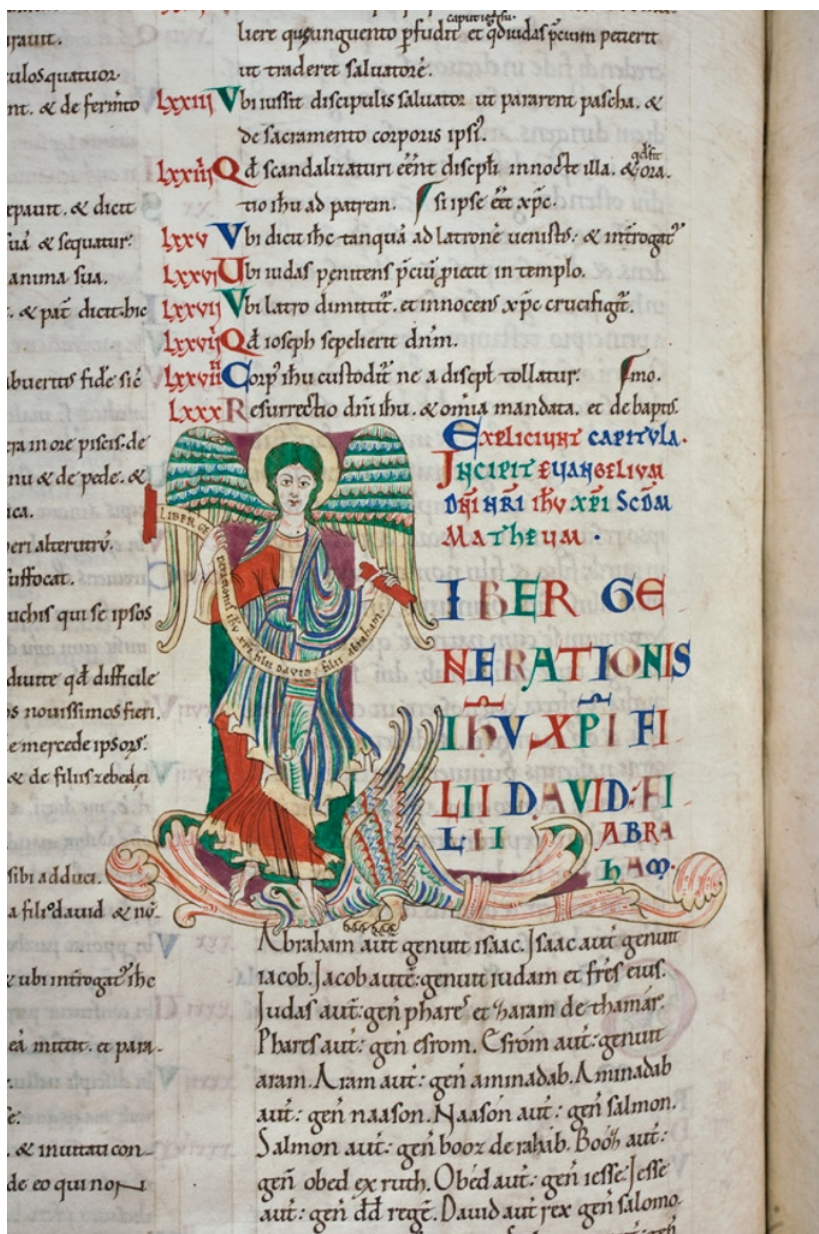 ulos quatuor.
nt. & de fermto
epauit. & dicit
& sequatur:
anima sua.
dicit: hic
fidē sic
in ore piscis. de
nu & de pede. &
ica.
alterutrū.
suffocat.
uchis qui se ipsos
diuite qđ difficile
os nouissimos fieri.
e mercede ipsoꝝ.
& de filiis zebedei
sibi adduci.
a filiꝰ dauid & nō.
& ubi int̄rogatꝰ ihc
eā mittit. et para-
& inuitati con-
de eo qui non
liere quę unguento ꝑfudit caput iħu. et qđ iudas p̄cium petierit
ut traderet saluatorē.
LXXIII Vbi iussit discipulis saluator ut pararent pascha. &
de sacramento corporis ipsiꝰ.
LXXIIII Qđ scandalizaturi eēnt discipłi in nocte illa. & qđ fit ora-
tio iħu ad patrem. si ipse eēt xp̄c.
LXXV Vbi dicit iħc tanquā ad latronē uenistis: & int̄rogatꝰ
LXXVI Ubi iudas penitens p̄ciū ꝓiecit in templo.
LXXVII Vbi latro dimittit᷑. et innocens xp̄c crucifigit᷑.
LXXVIII Qđ ioseph sepelierit dn̄m.
LXXVIIII Corpꝰ iħu custodit᷑ ne a discipł tollatur.
LXXX Resurrectio dn̄i iħu. & om̄ia mandata. et de baptis- mo.
EXPLICIUNT CAPITVLA.
INCIPIT EVANGELIVM
DN̄I NR̄I IH̄V XP̄I SCDM
MATHEUM.
LIBER GE
NERATIONIS IHV XPI FILII DAVID: FILII ABRAHAM
LIBER GE
NERATIONIS
IH̄V XP̄I FI
LII DAVID: FI
LII ABRA
HAM.
Abraham aut̄ genuit isaac. Isaac aut̄ genuit
iacob. Jacob autē: genuit iudam et fr̄es eius.
Judas aut̄: gen̄ phareſ et zaram de thamar.
Phares aut̄: gen̄ esrom. Esrom aut̄: genuit
aram. Aram aut̄: gen̄ aminadab. Aminadab
aut̄: gen̄ naason. Naason aut̄: gen̄ salmon.
Salmon aut̄: gen̄ booz de rahab. Booz aut̄:
gen̄ obed ex ruth. Obed aut̄: gen̄ iesse. Jesse
aut̄: gen̄ dd̄ regē. Dauid aut̄ rex gen̄ salomo-